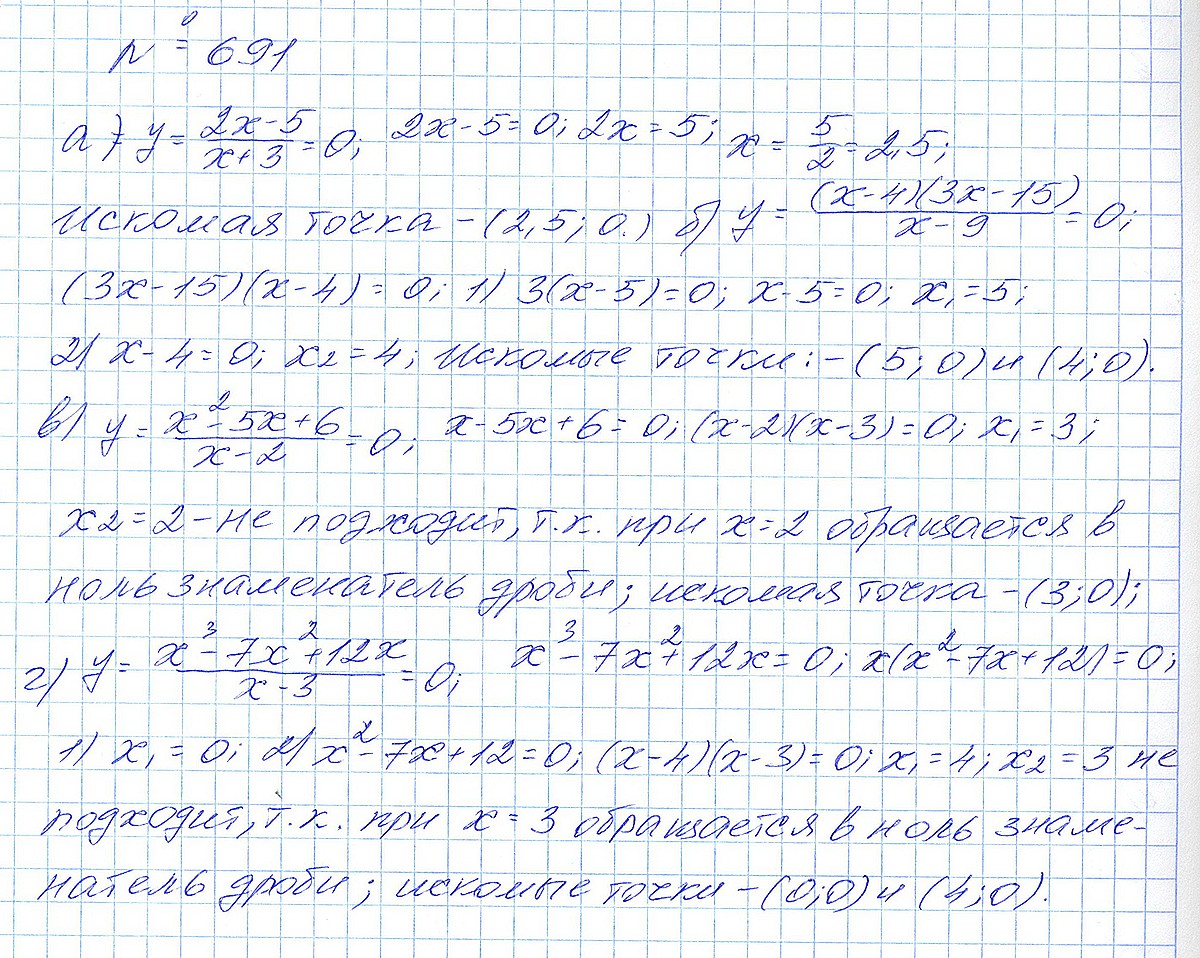 № 691
а) y = (2x-5)/(x+3) = 0; 2x-5=0; 2x=5; x = 5/2 = 2,5;
Искомая точка - (2,5; 0.) б) y = (x-4)(3x-15)/(x-9) = 0;
(3x-15)(x-4)=0; 1) 3(x-5)=0; x-5=0; x₁=5;
2) x-4=0; x₂=4; Искомые точки: - (5; 0) и (4; 0).
в) y = (x²-5x+6)/(x-2) = 0; x-5x+6=0; (x-2)(x-3)=0; x₁=3;
x₂=2 - не подходит, т.к. при x=2 обращается в
ноль знаменатель дроби; искомая точка - (3; 0);
г) y = (x³-7x²+12x)/(x-3) = 0; x³-7x²+12x=0; x(x²-7x+12)=0;
1) x₁=0; 2) x²-7x+12=0; (x-4)(x-3)=0; x₁=4; x₂=3 не
подходит, т.к. при x=3 обращается в ноль знаме-
натель дроби; искомые точки - (0; 0) и (4; 0).